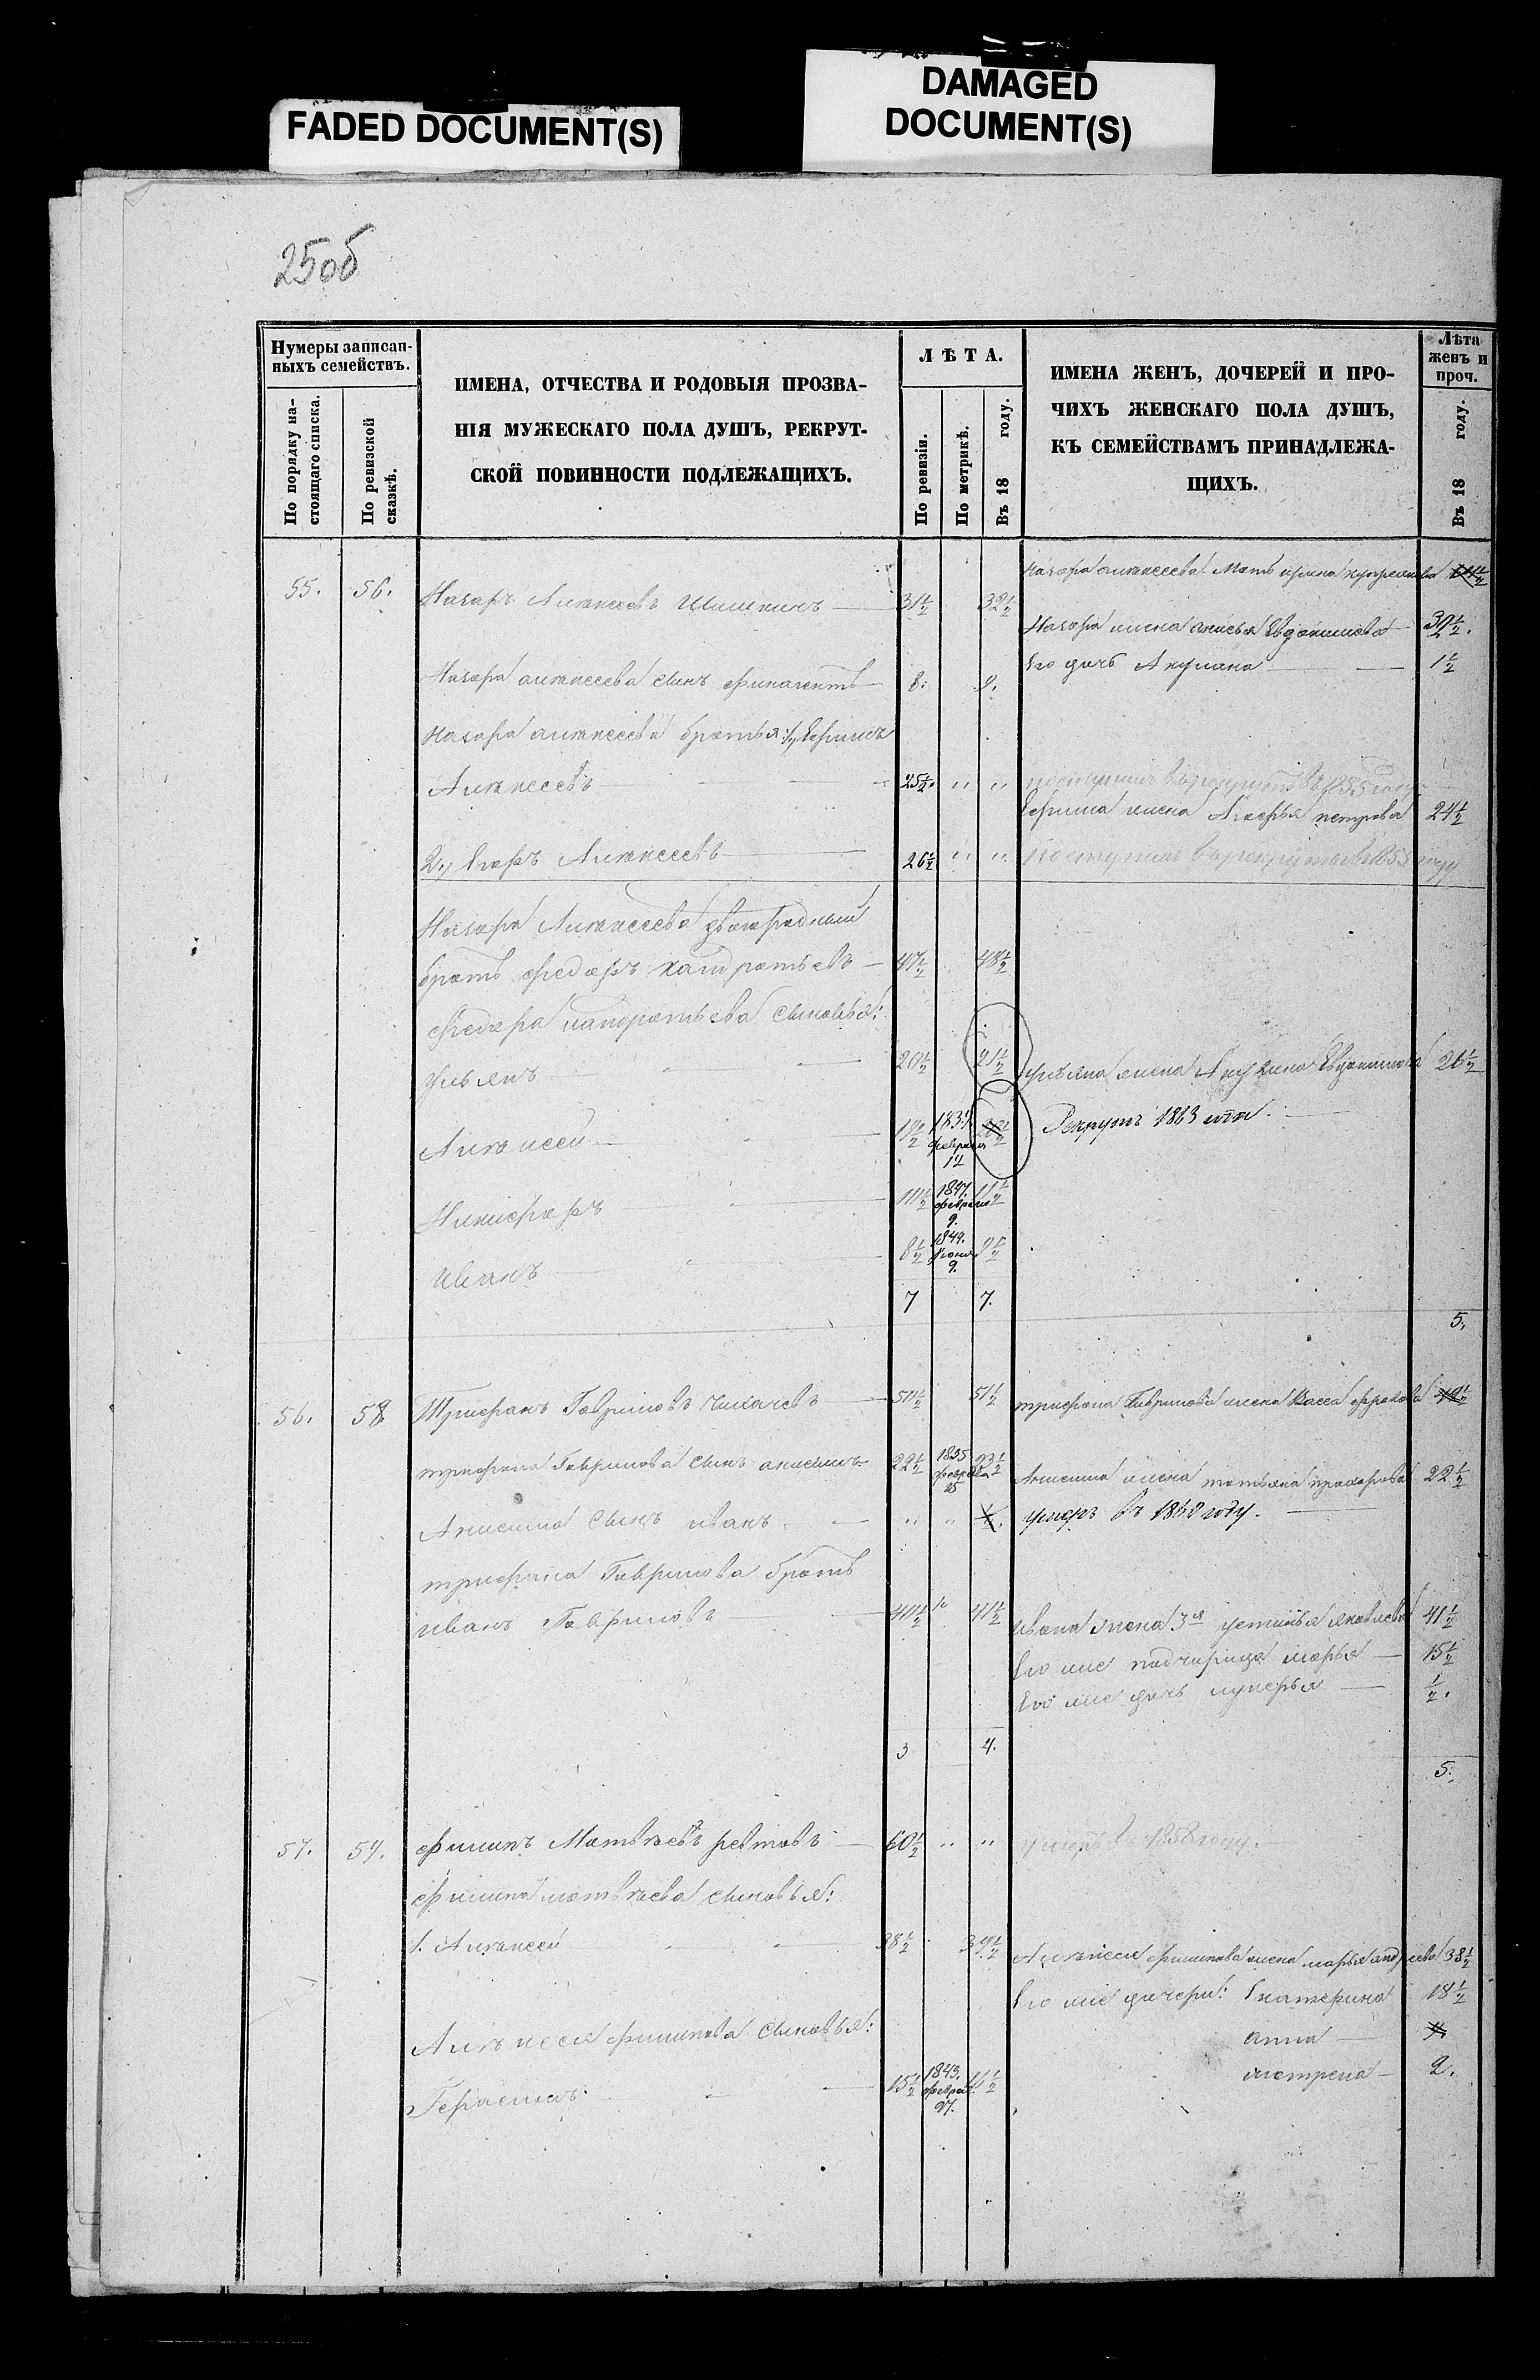 FADED DOCUMENT(S)
DAMAGED
DOCUMENT(S)
250б
Нумеры записан-
ныхъ семействъ.
По порядку на-
стоящаго списка.
По ревизской
сказкѣ.
ИМЕНА, ОТЧЕСТВА И РОДОВЫЯ ПРОЗВА-
НІЯ МУЖЕСКАГО ПОЛА ДУШЪ, РЕКРУТ-
СКОЙ ПОВИННОСТИ ПОДЛЕЖАЩИХЪ.
ЛѢТА.
По ревизіи.
По метрикѣ.
Въ 18 году.
ИМЕНА ЖЕНЪ, ДОЧЕРЕЙ И ПРО-
ЧИХЪ ЖЕНСКАГО ПОЛА ДУШЪ,
КЪ СЕМЕЙСТВАМЪ ПРИНАДЛЕЖА-
ЩИХЪ.
Лѣта
женъ и
проч.
Въ 18 году.
Назара алексеева Мать
55. 56. Назаръ Алексеевъ Шишкинъ 31½ 32½
Назара жена анисья Евдокимова 39½.
Его дочь Акулина 1½
Назара алексеева сынъ 8. 9.
Назара алексеева братья: 1, Ефимъ
Алексеевъ 25½. " " поступилъ въ рекруты въ 1855 году
Ефима жена петрова 24½
2, Егоръ Алексеевъ 26½ " " поступилъ въ рекруты въ 1855 году
Назара Алексеева двоюродный
братъ федоръ кандратьевъ 47½ 48½
федора кандратьева сыновья:
ульянъ 20½ 21½ ульяна жена Акулина Евдокимова 26½
Алексей 1837 февраля 14 Рекрутъ 1863 года.
Никифоръ 11½ 1847. февраля 9. 11½
иванъ 8½ 1849. 9. 9½
7 7.
5.
56. 58 Трифонъ Гавриловъ 50½ 51½ трифона Гаврилова жена Васса фролова
трифона Гаврилова сынъ анисимъ 22½ 1835 февраля 15 23½ Анисима жена татьяна прохорова 22½
Анисима сынъ иванъ " " ½. умеръ въ 1860 году.
трифона Гаврилова братъ
иванъ Гавриловъ 40½ 41½ ивана жена 3я устинья яковлева 41½
Его же падчерица марья 15½
Его же дочь лукерья ½.
3 4.
5.
57. 59. филипъ Матвѣевъ ревтовъ 60½ " " умеръ въ 1858 году.
филипа матвѣева сыновья:
1. Алексей 38½ 39½ Алексея филипова жена марья андреева 38½
Его же дочери: Екатерина 18½
Алексея филипова сыновья: анна
матрена 2.
Герасимъ 15½ 1843. феврал 27. 16½